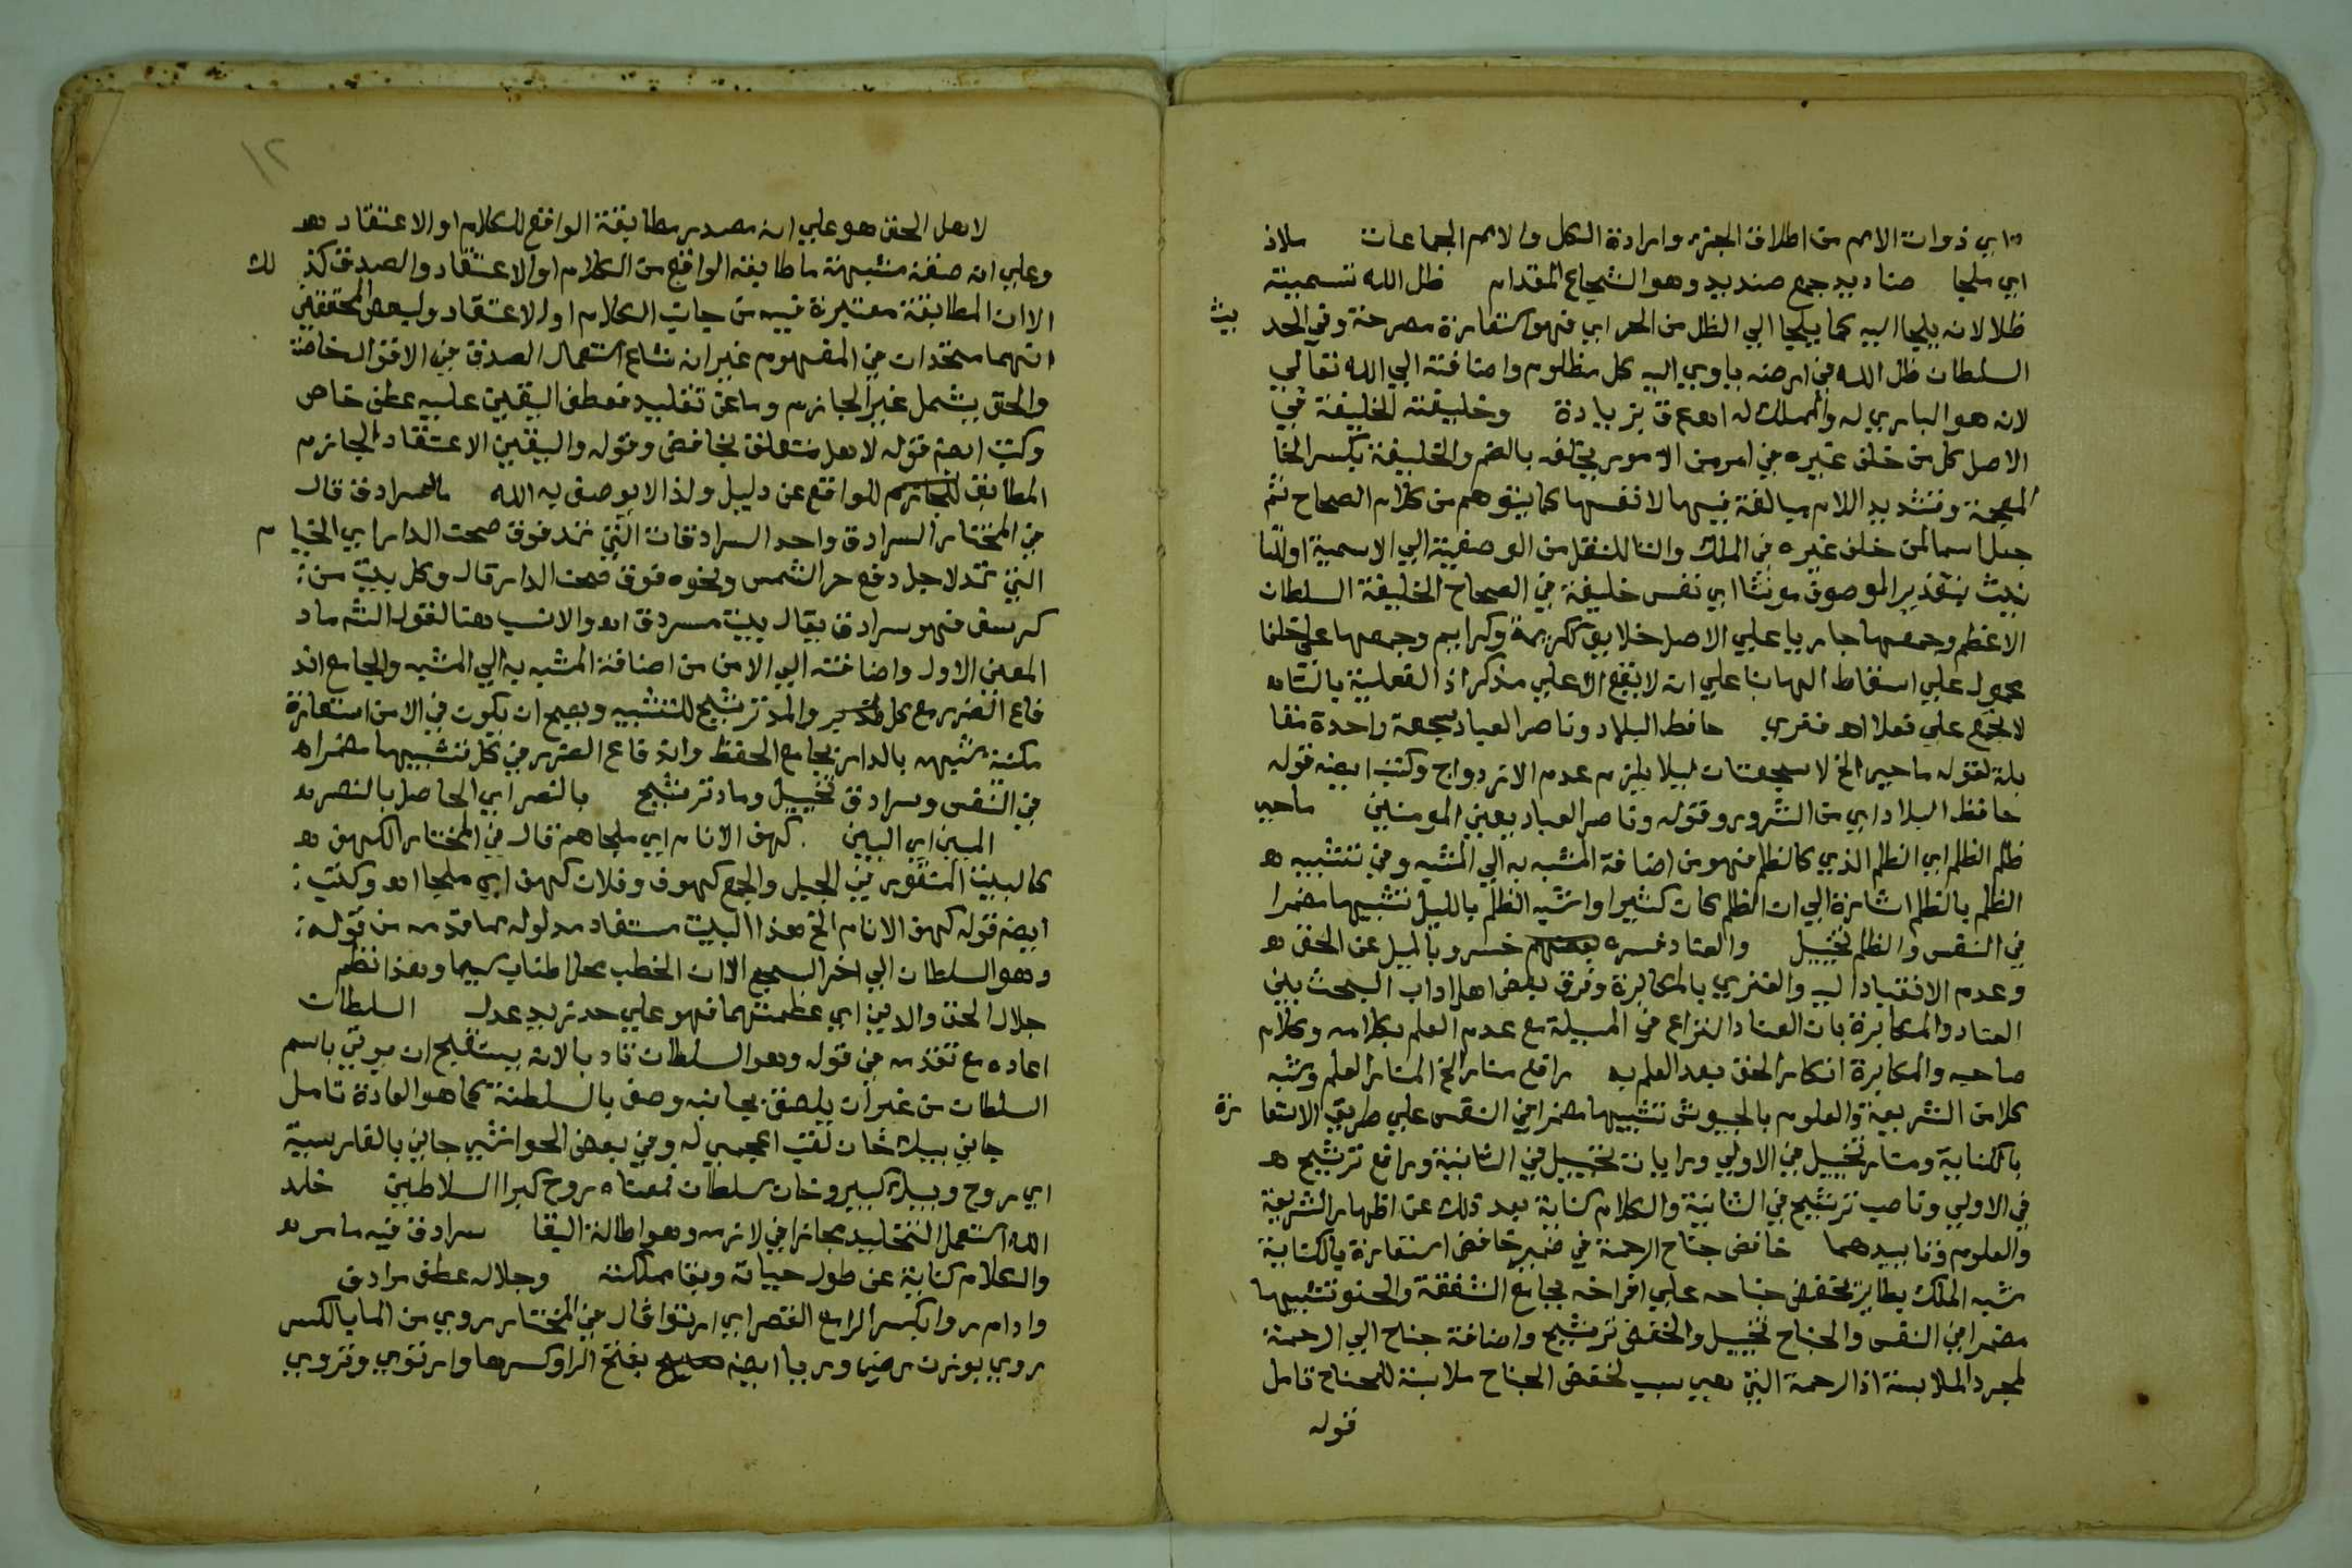 اي ذوات الامم من اطلاق الجزء وارادة الكل والامم الجماعات ملاذ
اي ملجا صناديد جمع صنديد وهو الشجاع المقدام ظل الله تسميته
ظلا لانه يلجا اليه كما يلجا الي الظل من الحر اي فهو استعارة مصرحة وفي الحديث
السلطان ظل الله في ارضه ياوي اليه كل مظلوم واضافته الي الله تعالي
لانه هو الباري له والمملك له اهع ق بزيادة وخليفته الخليفة في
الاصل كل من خلف غيره في امر من الامور يخلفه بالضم والخليفة بكسر الخا
المعجمة وتشديد اللام مبالغة فيها لا نفسها كما يتوهم من كلام الصحاح ثم
جعل اسما لمن خلف غيره في الملك والتا للنقل من الوصفية الي الاسمية او للتا
نيث بتقدير الموصوف مونثا اي نفس خليفة في الصحاح الخليفة السلطان
الاعظم وجمعها جاريا علي الاصل خلايف ككريمة وكرايم وجمعها علي خلفا
محمول علي اسقاط الها بنا علي انه لا يقع الا علي مذكر اذ الفعلية بالتاء
لا تجمع علي فعلا اه فنري حافظ البلاد وناصر العباد سجعة واحدة مقا
بلة لقوله ماحي الخ لا سجعتان ليلا يلزم عدم الازدواج وكتب ايضه قوله
حافظ البلاد اي من الشرور وقوله وناصر العباد يعني المومنين ماحي
ظلم الظلم اي الظلم الذي كالظلم فهو من اضافة المشبه به الي المشبه وفي تشبيه
الظلم بالظلم اشارة الي ان الظلم كان كثيرا او شبه الظلم بالليل تشبيها مضمرا
في النفس والظلم تخييل والعناد فسره بعضهم خسرو بالميل عن الحق
وعدم الانقياد اليه والفنري بالمكابرة وفرق بعض اهل اداب البحث بين
العناد والمكابرة بان العناد النزاع في المسيلة مع عدم العلم بكلامه وكلام
صاحبه والمكابرة انكار الحق بعد العلم به رافع منار الخ المنار العلم وشبه
كلا من الشريعة والعلوم بالجيوش تشبيها مضمرا في النفس علي طريق الاستعارة
بالكناية ومنار تخييل في الاولي ورايات تخييل في الثانية ورافع ترشيح
في الاولي وناصب ترشيح في الثانية والكلام كناية بعد ذلك عن اظهار الشريعة
والعلوم وتاييدهما خافض جناح الرحمة في ضمير خافض استعارة بالكناية
شبه الملك بطاير يخفض جناحه علي افراخه بجامع الشفقة والحنو تشبيها
مضمرا في النفس والجناح تخييل والخفض ترشيح واضافة جناح الي الرحمة
لمجرد الملابسة اذ الرحمة التي هي سبب لخفض الجناح ملابسة للجناح تامل
قوله
١٢
لاهل الحق هو علي انه مصدر مطابقة الواقع للكلام او الاعتقاد
وعلي انه صفة مشبهة ما طابقه الواقع من الكلام او الاعتقاد والصدق كذلك
الا ان المطابقة معتبرة فيه من جانب الكلام او الاعتقاد ولبعض المحققين
انهما متحدان في المفهوم غير ان شاع استعمال الصدق في الافق الخاصة
والحق يشمل غير الجازم وما عن تقليد فعطف اليقين عليه عطف خاص
وكتب ايضه قوله لاهل متعلق بخافض وقوله واليقين الاعتقاد الجازم
المطابق للجازم للواقع عن دليل ولذا لا يوصف به الله السرادق قال
في المختار السرادق واحد السرادقات التي تمد فوق صحن الدار اي الخيام
التي تمد لاجل دفع حر الشمس ونحوه فوق صحن الدار قال وكل بيت من
كرسف فهو سرادق يقال بيت مسردق اه والانسب هنا لقوله الشه ماد
المعنى الاول واضافته الي الامن من اضافة المشبه به الي المشبه والجامع اند
فاع الضرر مع كل والمد ترشيح للتشبيه ويصح ان يكون في الامن استعارة
مكنية شبهه بالدار بجامع الحفظ واندفاع الضرر في كل تشبيها مضمرا
في النفس وسرادق تخييل وماد ترشيح بالنصر اي الحاصل بالنصر
المبين اي البين كهف الانام اي ملجاهم قال في المختار الكهف
كالبيت المنقور في الجبل والجمع كهوف وفلان كهف اي ملجا اه وكتب
ايضه قوله كهف الانام الخ هذا البيت مستفاد مدلوله مما قدمه من قوله
وهو السلطان الي اخر السجع الا ان الخطب محل اطناب سيما وهذا نظم
جلال الحق والدين اي عظمتهما فهو علي حد زيد عدل السلطان
اعاده مع تقدمه في قوله وهو السلطان تادبا لانه يستقبح ان يوتي باسم
السلطان من غير ان يلصق بجانبه وصف بالسلطنة كما هو العادة تامل
جاني بيك خان لقب اعجمي له وفي بعض الحواشي جاني بالفارسية
اي روح وبيك كبير وخان سلطان فمعناه روح كبرا السلاطين خلد
الله استعمل التخليد مجازا في لازمه وهو اطالة البقا سرادق فيه ما مر
والكلام كناية عن طول حياته وبقا مملكته وجلاله عطف مرادف
وادام روا بكسر الراء مع القصر اي ارتوا قال في المختار روي من الما بالكسر
روي بوزن رضي وريا ايضه بفتح الرا وكسرها وارتوي وتروي